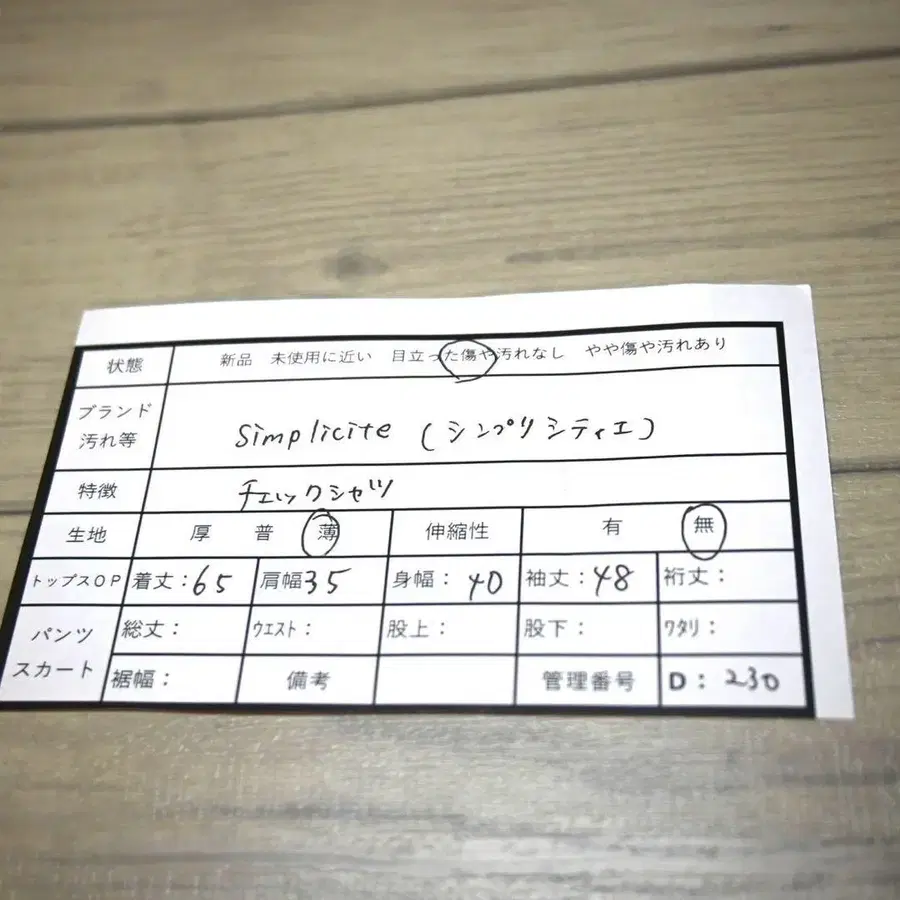 状態 新品 未使用に近い 目立った傷や汚れなし やや傷や汚れあり
ブランド
汚れ等
simplicite (シンプリシティエ)
特徴 チェックシャツ
生地 厚 普 薄 伸縮性 有 無
トップスOP 着丈:65 肩幅35 身幅:40 袖丈:48 裄丈:
パンツ
スカート
総丈: ウエスト: 股上: 股下: ワタリ:
裾幅: 備考 管理番号 D:230